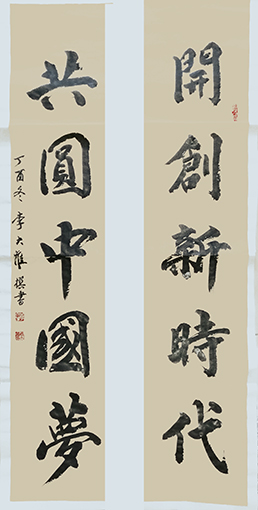 開創新時代
共圓中國夢
丁酉冬李大雅撰書